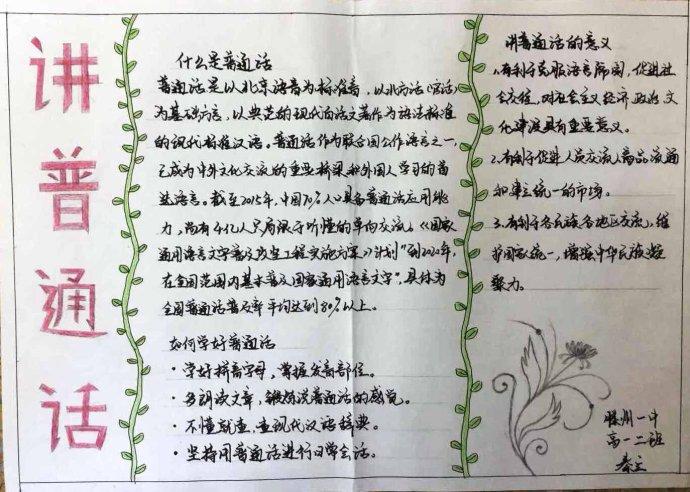 讲普通话
什么是普通话
普通话是以北京语音为标准音，以北方话（官话）
为基础方言，以典范的现代白话文著作为语法标准
的现代标准汉语。普通话作为联合国工作语言之一，
已成为中外文化交流的重要桥梁和外国人学习的首
选语言。截至2015年，中国70%人口具备普通话应用能
力，尚有4亿人只局限于听懂的单向交流。《国家
通用语言文字普及攻坚工程实施方案》计划"到2020年，
在全国范围内基本普及国家通用语言文字"，具体为
全国普通话普及率平均达到80%以上。
如何学好普通话
·学好拼音字母，掌握发音部位。
·多朗读文章，锻炼说普通话的感觉。
·不懂就查，查现代汉语辞典。
·坚持用普通话进行日常会话。
讲普通话的意义
1.有利于克服语言隔阂，促进社
会交往，对社会主义经济 政治 文
化建设具有重要意义。
2.有利于促进人员交流，商品流通
和建立统一的市场。
3.有利于各民族各地区交流，维
护国家统一，增强中华民族凝
聚力。
胶州一中
高一二班